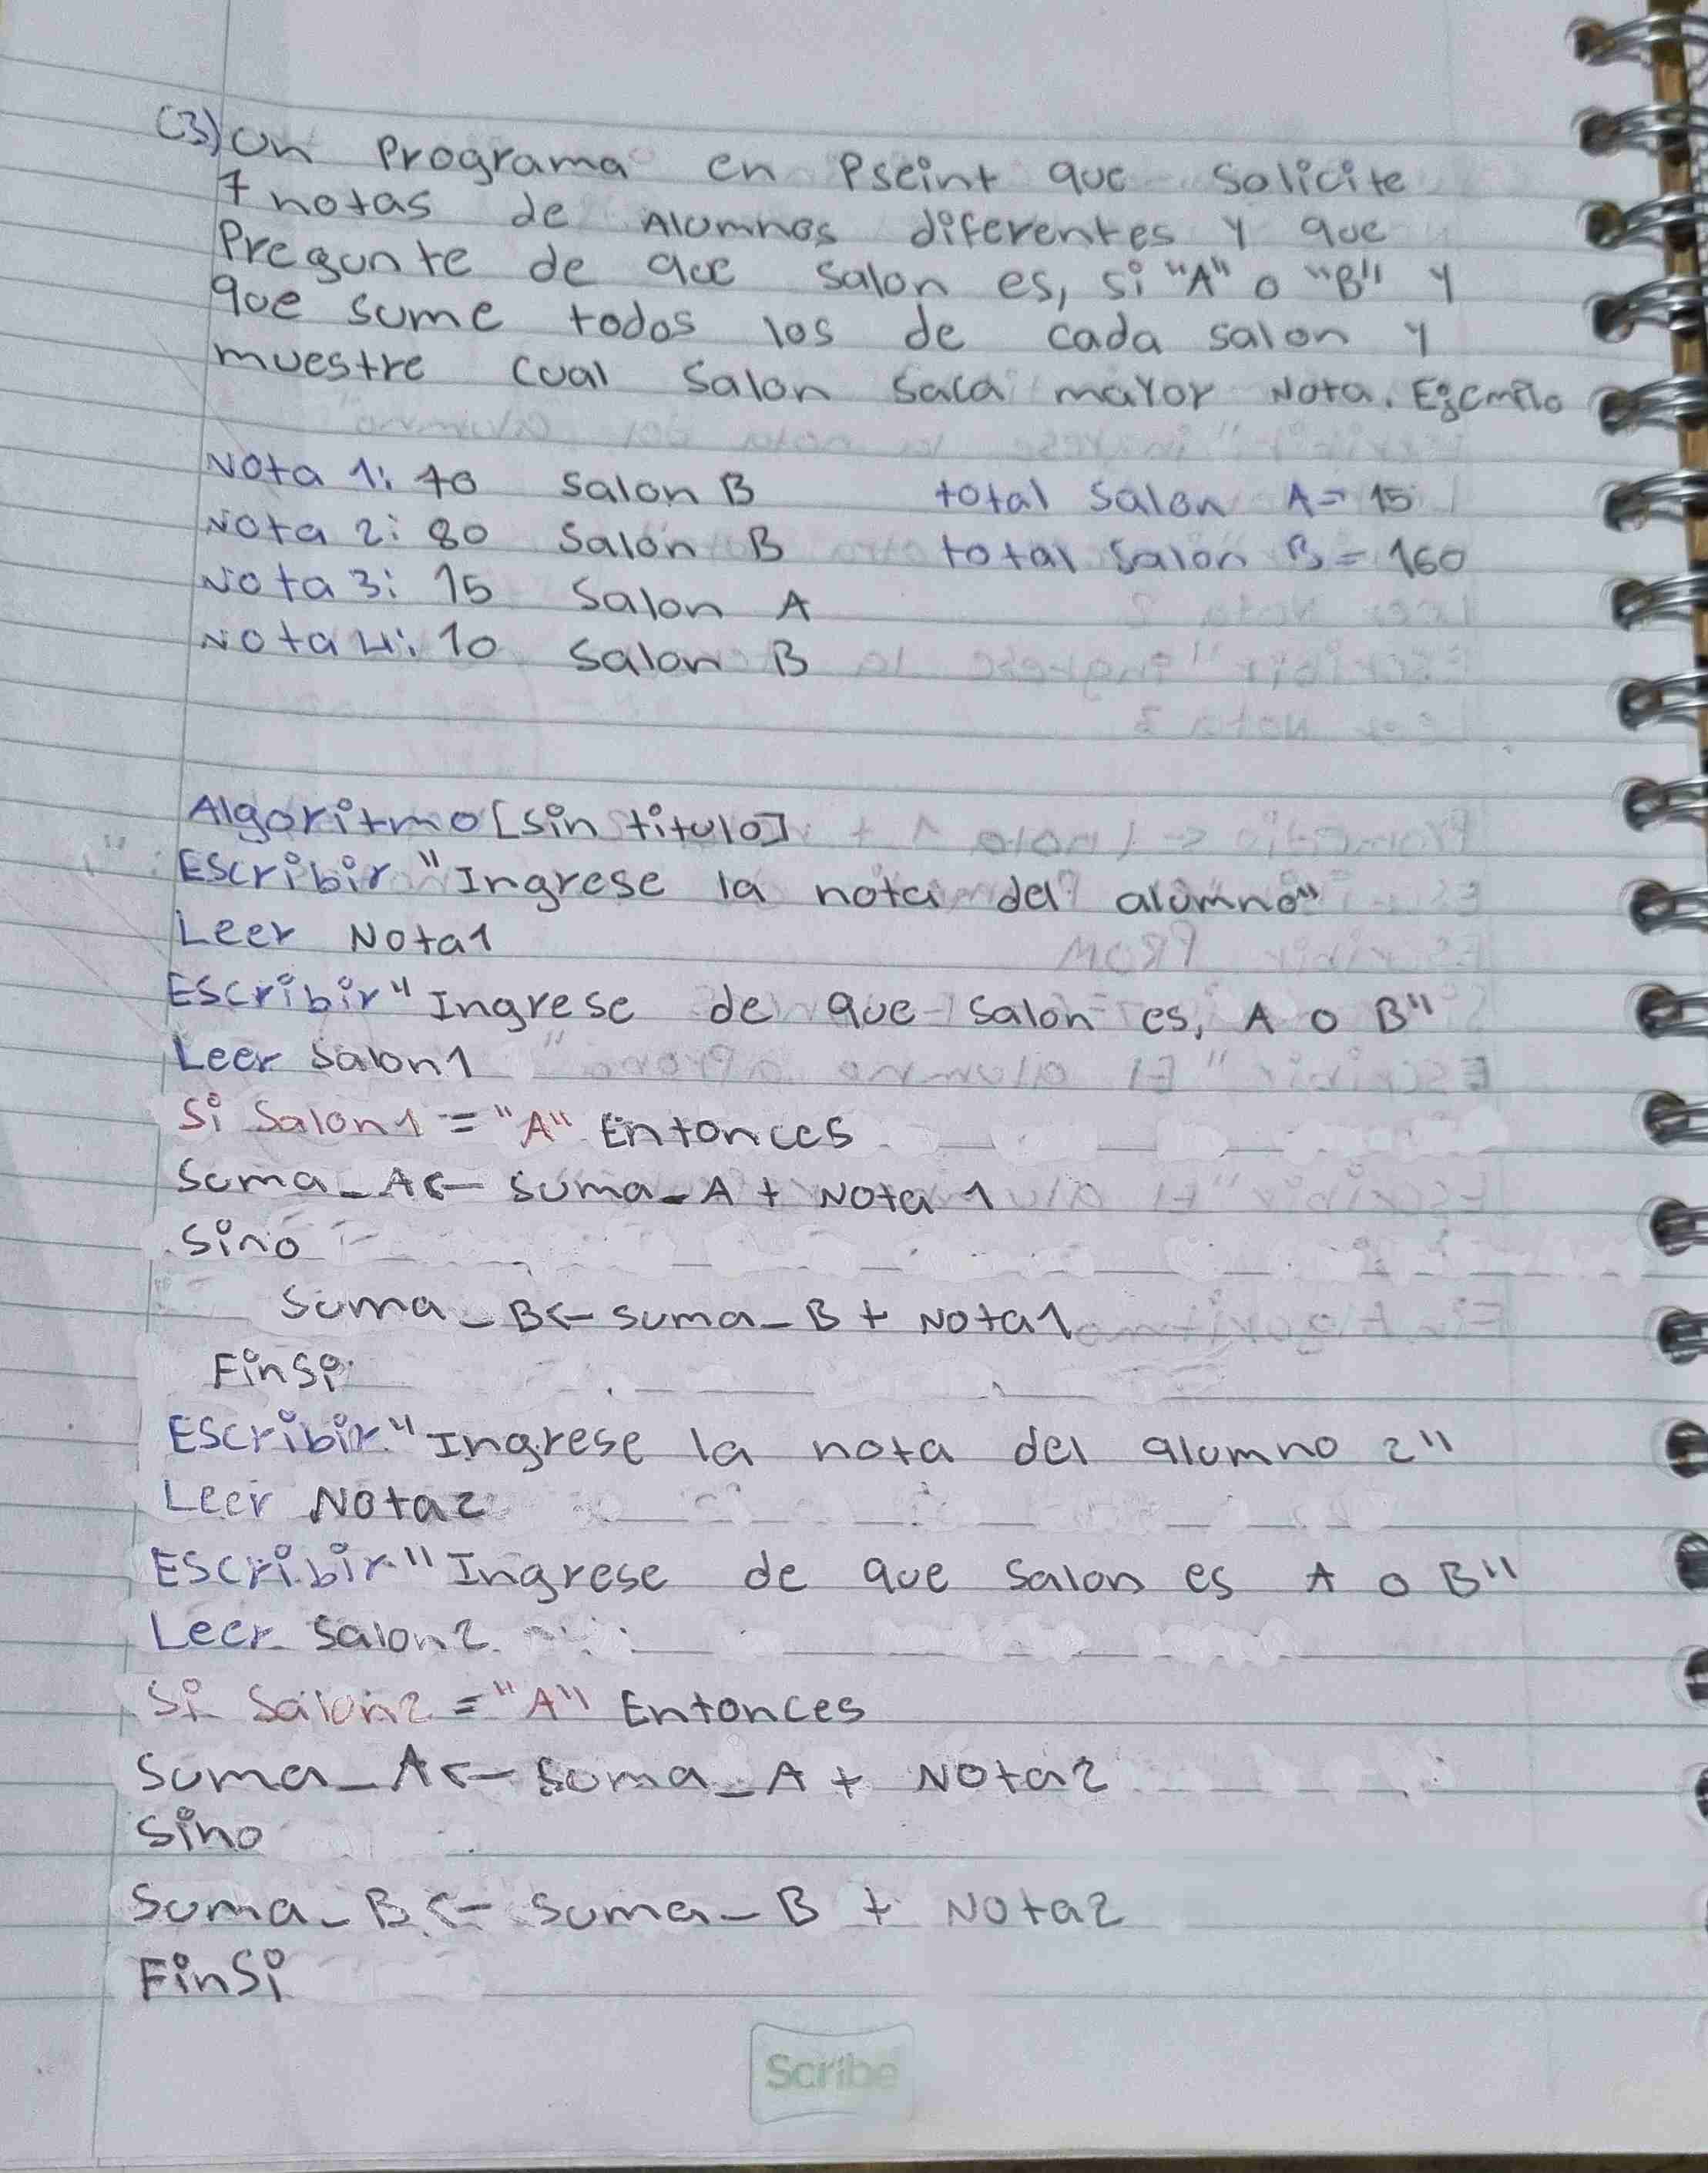 (3) Un Programa en Pseint que solicite
7 notas de Alumnos diferentes y que
Pregunte de que salon es, si "A" o "B" y
que sume todos los de cada salon y
muestre cual salon saca mayor Nota. Ejemplo
Nota 1: 70 Salon B total salon A= 15
Nota 2: 80 Salon B total salon B= 160
Nota 3: 15 Salon A
Nota 4: 10 Salon B
Algoritmo [sin titulo]
Escribir "Ingrese la nota del alumno"
Leer Nota1
Escribir "Ingrese de que salon es, A o B"
Leer salon1
Si Salon1 = "A" Entonces
Suma_A<- suma_A + Nota 1
Sino
Suma_B<- suma_B + Nota1
FinSi
Escribir "Ingrese la nota del alumno 2"
Leer Nota2
Escribir "Ingrese de que salon es A o B"
Leer salon2
Si Salon2 = "A" Entonces
Suma_A<- suma_A + Nota2
Sino
Suma_B<- suma_B + Nota2
FinSi
Scribe